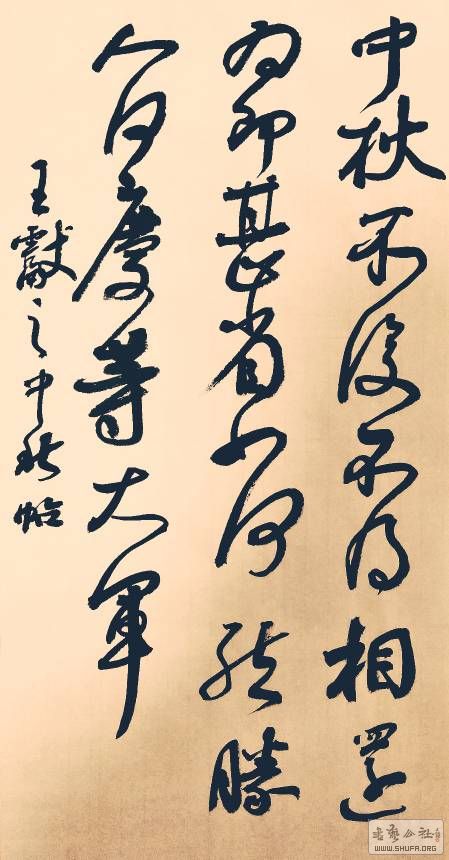 中秋不復不得相還
為即甚省如何然勝
人何慶等大軍
王獻之中秋帖
WWW.SHUFA.ORG